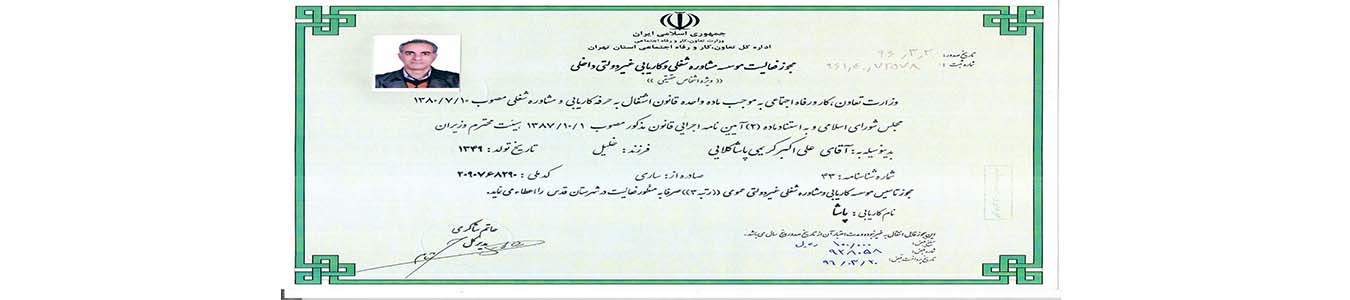 جمهوری اسلامی ایران
وزارت تعاون، کار و رفاه اجتماعی
اداره کل تعاون، کار و رفاه اجتماعی استان تهران
تاریخ صدور: ۹۶/۳/۲
شماره ثبت:
مجوز فعالیت موسسه مشاوره شغلی و کاریابی غیردولتی داخلی
«ویژه اشخاص حقیقی»
وزارت تعاون، کار و رفاه اجتماعی به موجب ماده واحده قانون اشتغال به حرفه کاریابی و مشاوره شغلی مصوب ۱۳۸۰/۷/۱۰
مجلس شورای اسلامی و به استناد ماده (۲) آیین نامه اجرایی قانون مذکور مصوب ۱۳۸۷/۱۰/۱ هیئت محترم وزیران
بدینوسیله به: آقای علی اکبر کریمی پاشاکلایی فرزند: خلیل تاریخ تولد: ۱۳۴۹
شماره شناسنامه: ۴۳ صادره از: ساری کد ملی: ۲۰۹۰۷۶۸۲۹۰
مجوز تاسیس موسسه کاریابی و مشاوره شغلی غیردولتی عمومی «رتبه ۳» صرفا به منظور فعالیت در شهرستان قدس را اعطاء می نماید.
نام کاریابی: پاشا
این مجوز قابل انتقال به غیر نبوده و مدت اعتبار آن از تاریخ صدور پنج سال می باشد.
۱۰۰/۰۰۰ ریال
شماره فیش: ۹۲۸۰۵۸
تاریخ پرداخت فیش: ۹۶/۰۳/۲۰
حاتم شاکرمی
مدیرکل